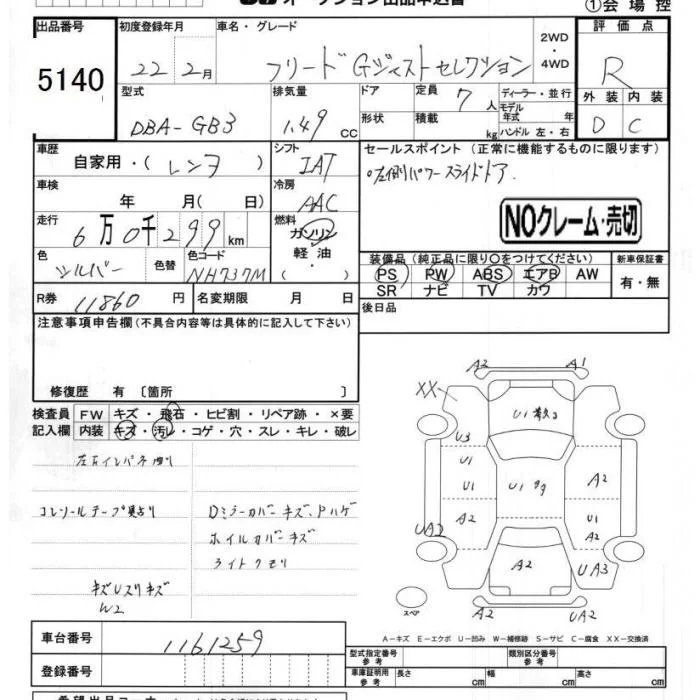 オークション出品申込書
①会場控
出品番号
5140
初度登録年月
22年2月
車名・グレード
フリード Gジャストセレクション
2WD
・
4WD
評価点
R
外装 内装
D C
型式
DBA-GB3
排気量
1.49 cc
ドア
形状
定員 7人
積載 kg
ディーラー・並行
モデル
年式 年
ハンドル 左・右
車歴
自家用・(レンタ)
シフト
IAT
セールスポイント(正常に機能するものに限ります)
左側パワースライドドア.
車検
年 月(日)
冷房
AAC
NOクレーム・売切
走行
6万0千299km
燃料
ガソリン
・
軽油
・( )
色
シルバー
色替
色コード
NH737M
装備品(純正品に限り〇をつけてください)
PS PW ABS エアB AW
SR ナビ TV カワ
新車保証書
有・無
R券
11860円
名変期限 月 日
後日品
注意事項申告欄(不具合内容等は具体的に記入して下さい)
修復歴 有〔箇所 〕
検査員
記入欄
FW キズ・飛石・ヒビ割・リペア跡・×要
内装 キズ・汚レ・コゲ・穴・スレ・キレ・破レ
コンソールテープ貼り
Dミラーカバーキズ、Pハゲ
ホイルカバーキズ
ライトクモリ
キズUスリキズ
W2
A2 A1
XX
U1
U3
U1
U1
A2
UA2
U1
A2
U1
A2
A2
UA3
A2
UA2
スペア
A-キズ E-エクボ U-凹み W-補修跡 S-サビ C-腐食 XX-交換済
車台番号
1161259
登録番号
型式指定番号
参考
類別区分番号
参考
車庫証明用
参考
長さ cm
幅 cm
高さ cm
希望出品コーナー